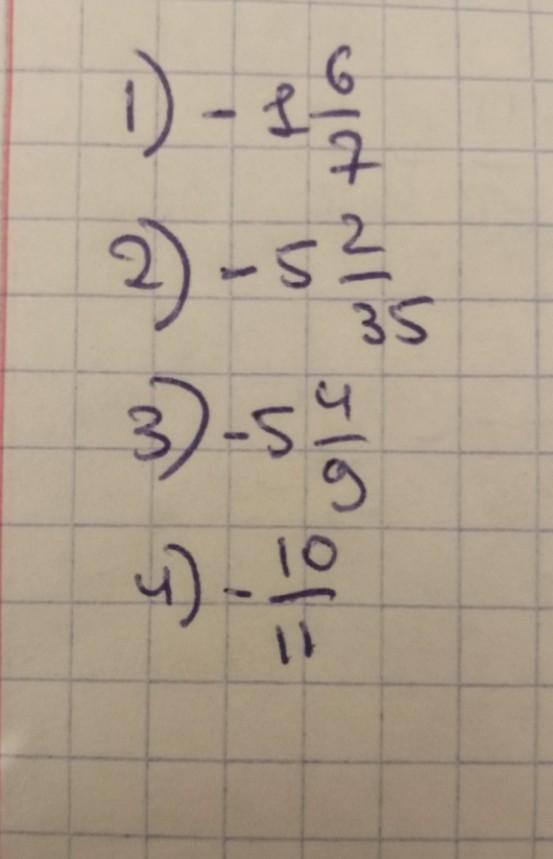 1) - 1 6/7
2) - 5 2/35
3) - 5 4/9
4) - 10/11